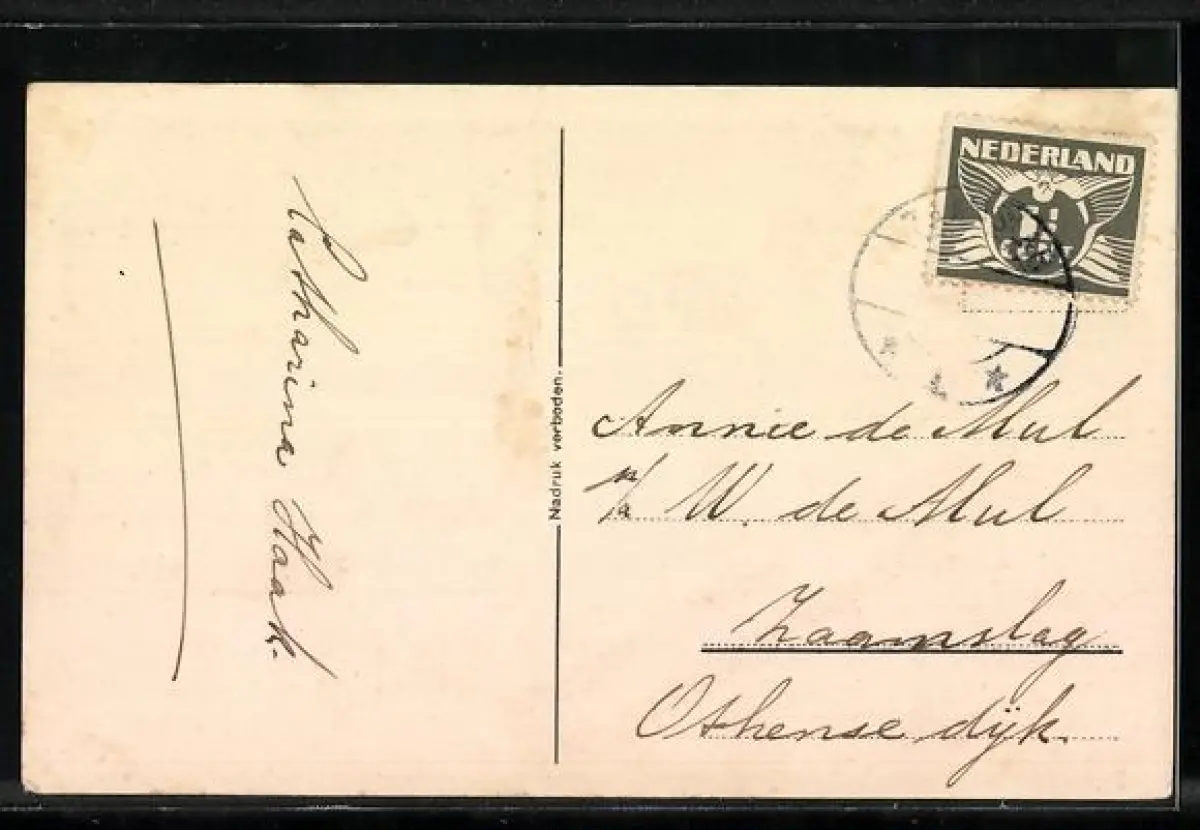 Catharina Haak.
Nadruk verboden.
NEDERLAND
Annie de Mul
p/a W. de Mul
Zaamslag
Othensedijk.